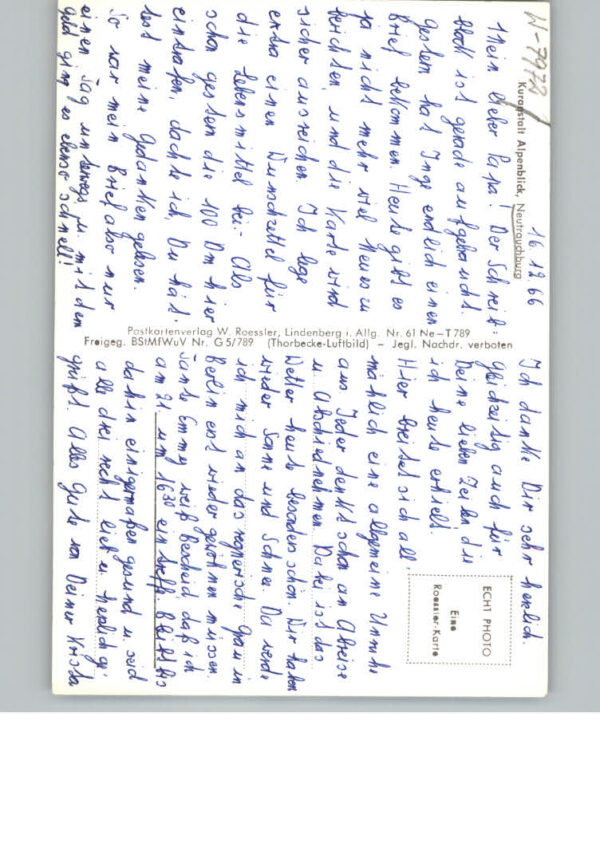 W-7972
Kuranstalt Alpenblick, Neutrauchburg
16.12.66
Mein lieber Papa! Der Schreib=
block ist gerade aufgebraucht.
Gestern hat Inge endlich einen
Brief bekommen. Heute gibt es
ja nicht mehr viel Neues zu
berichten, und die Karte wird
sicher ausreichen. Ich lege
extra einen Wunschzettel für
die Lebensmittel bei.- Als
schon gestern die 100 Dm hier
eintrafen, dachte ich, Du hät
test meine Gedanken gelesen.
So war mein Brief also nur
einen Tag unterwegs u. mit dem
Geld ging es ebenso schnell!
Postkartenverlag W. Roessler, Lindenberg i. Allg. Nr. 61 Ne–T 789
Freigeg. BStMfWuV Nr. G 5/789 (Thorbecke-Luftbild) – Jegl. Nachdr. verboten
ECHT PHOTO
Eine
Roessler-Karte
Ich danke Dir sehr herzlich.
Gleichzeitig auch für
Deine lieben Zeilen die
ich heute erhielt.
Hier breitet sich all
mählich eine allgemeine Unruhe
aus. Jeder denkt schon an Abreise
u. Abschiednehmen. Dabei ist das
Wetter heute besonders schön. Wir haben
wieder Sonne und Schnee. Da werde
ich mich an das regnerische Grau in
Berlin erst wieder gewöhnen müssen.
Tante Emmy weiß Bescheid daß ich
am 21. um 16³⁰ eintreffe. Bleibt bis
dahin einigermaßen gesund u. seid
alle drei recht lieb u. herzlich ge
grüßt. Alles Gute von Deiner Krista